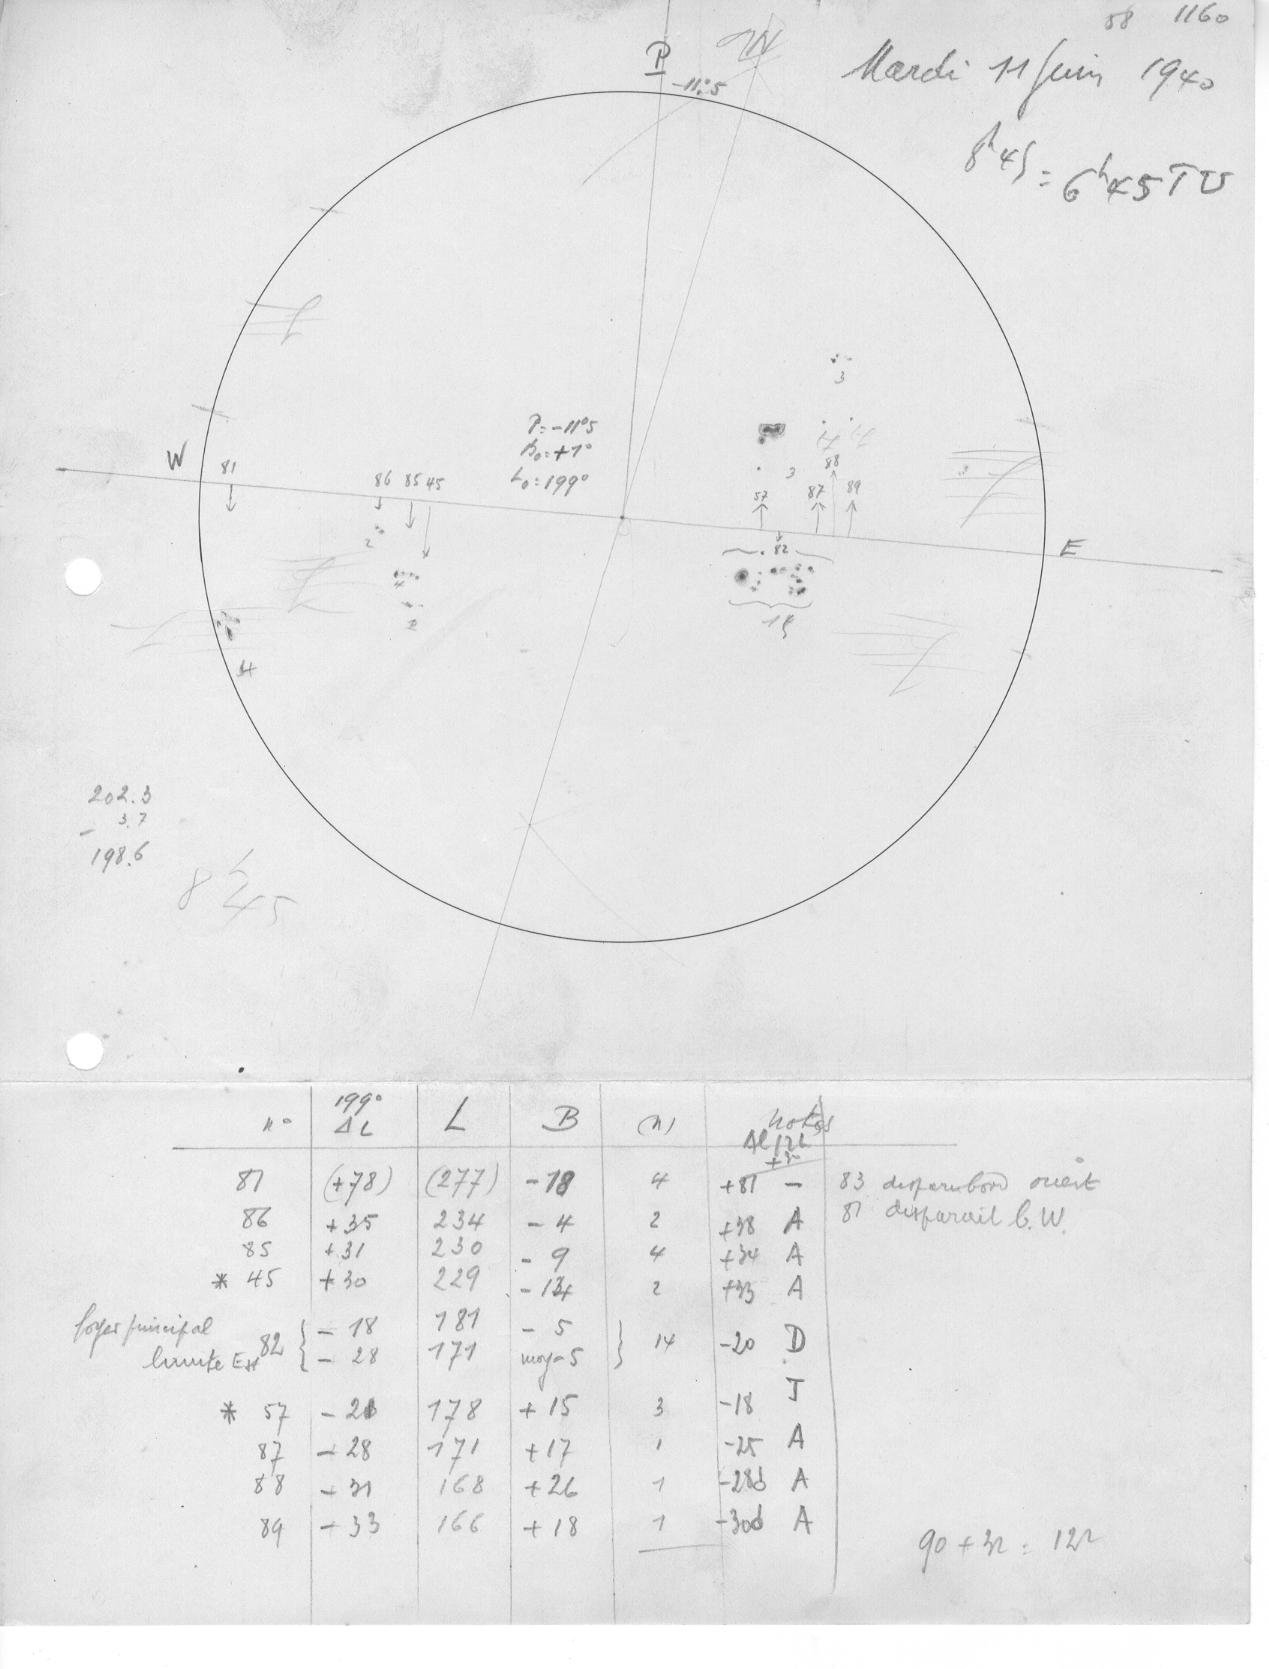 58 1160
Mardi 11 Juin 1940
8h45 = 6h45 TU
P
-11°5
P=-11°5
B₀=+1°
L₀=199°
W
E
81
86
85
45
57
87
88
89
82
3
3
2
4
2
4
14
202.3
- 3.7
198.6
8h45
n° 199° ΔL L B (n) Notes
81 (+78) (277) -18 4 +81 - 83 disparu bord ouest
86 +35 234 -4 2 +38 A 81 disparait b.W.
85 +31 230 -9 4 +34 A
* 45 +30 229 -14 2 +33 A
foyer principal 82 { -18 181 -5 } 14 -20 D
limite Est -28 171 moy-5
* 57 -21 178 +15 3 -18 J
87 -28 171 +17 1 -25 A
88 -31 168 +26 1 -28d A
89 -33 166 +18 1 -30d A
90 + 32 = 122